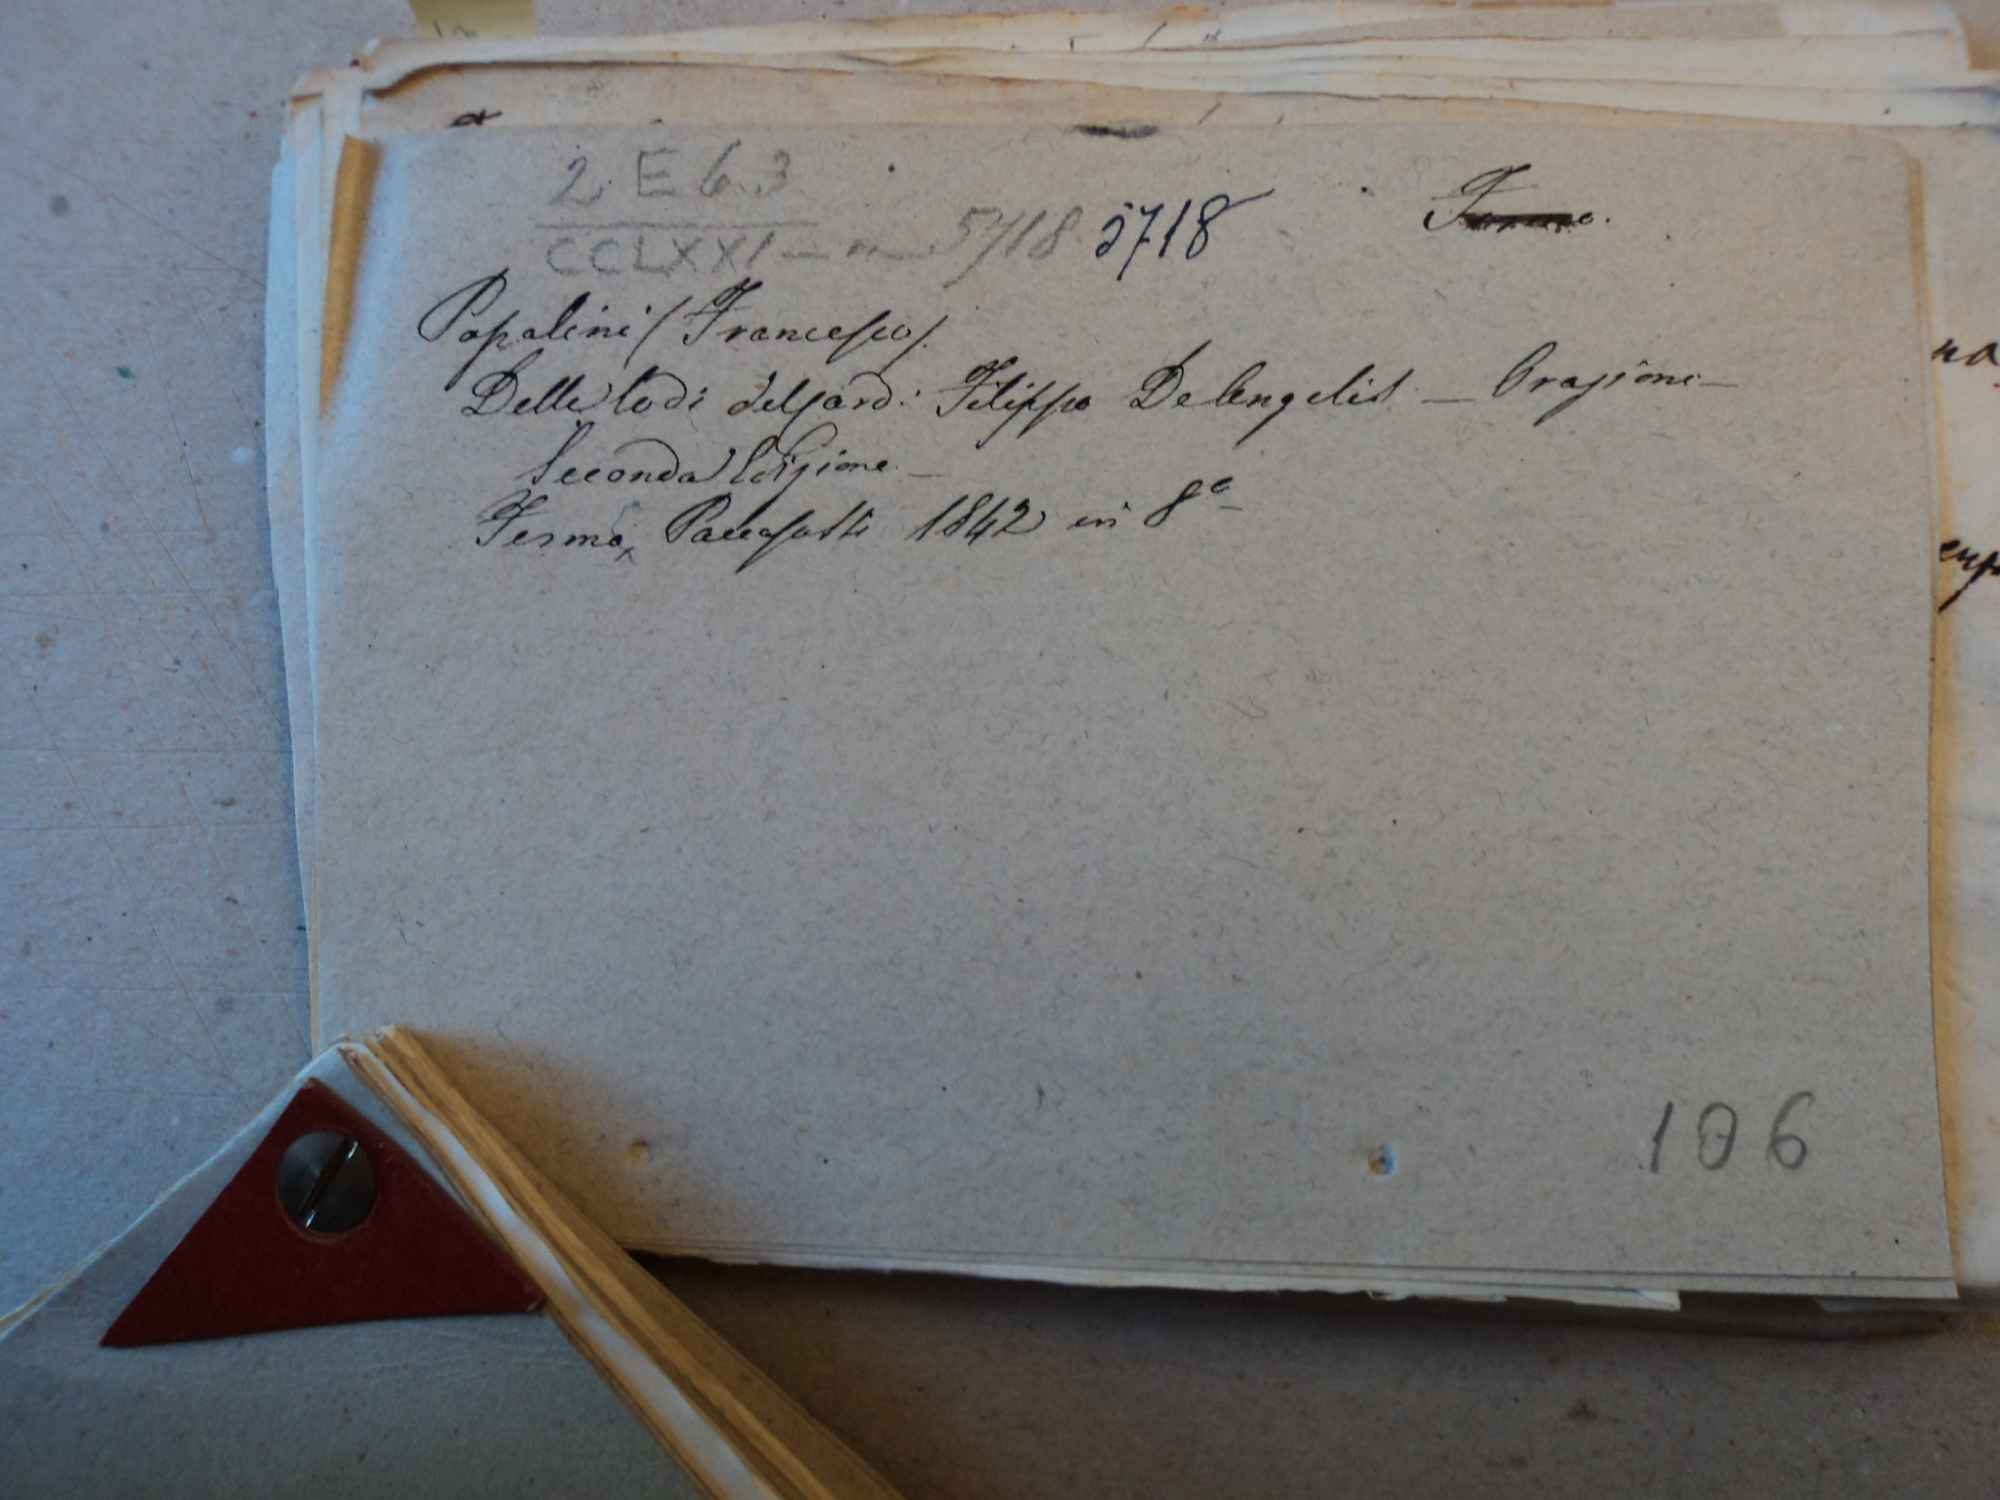 2 E 6.3
CCLXXI — n 5718 5718 Fermo.
Papalini (Francesco).
Delle lodi del Card: Filippo De Angelis — Orazione —
Seconda Edizione —
Fermo, Paccasassi 1842 in 8°
106